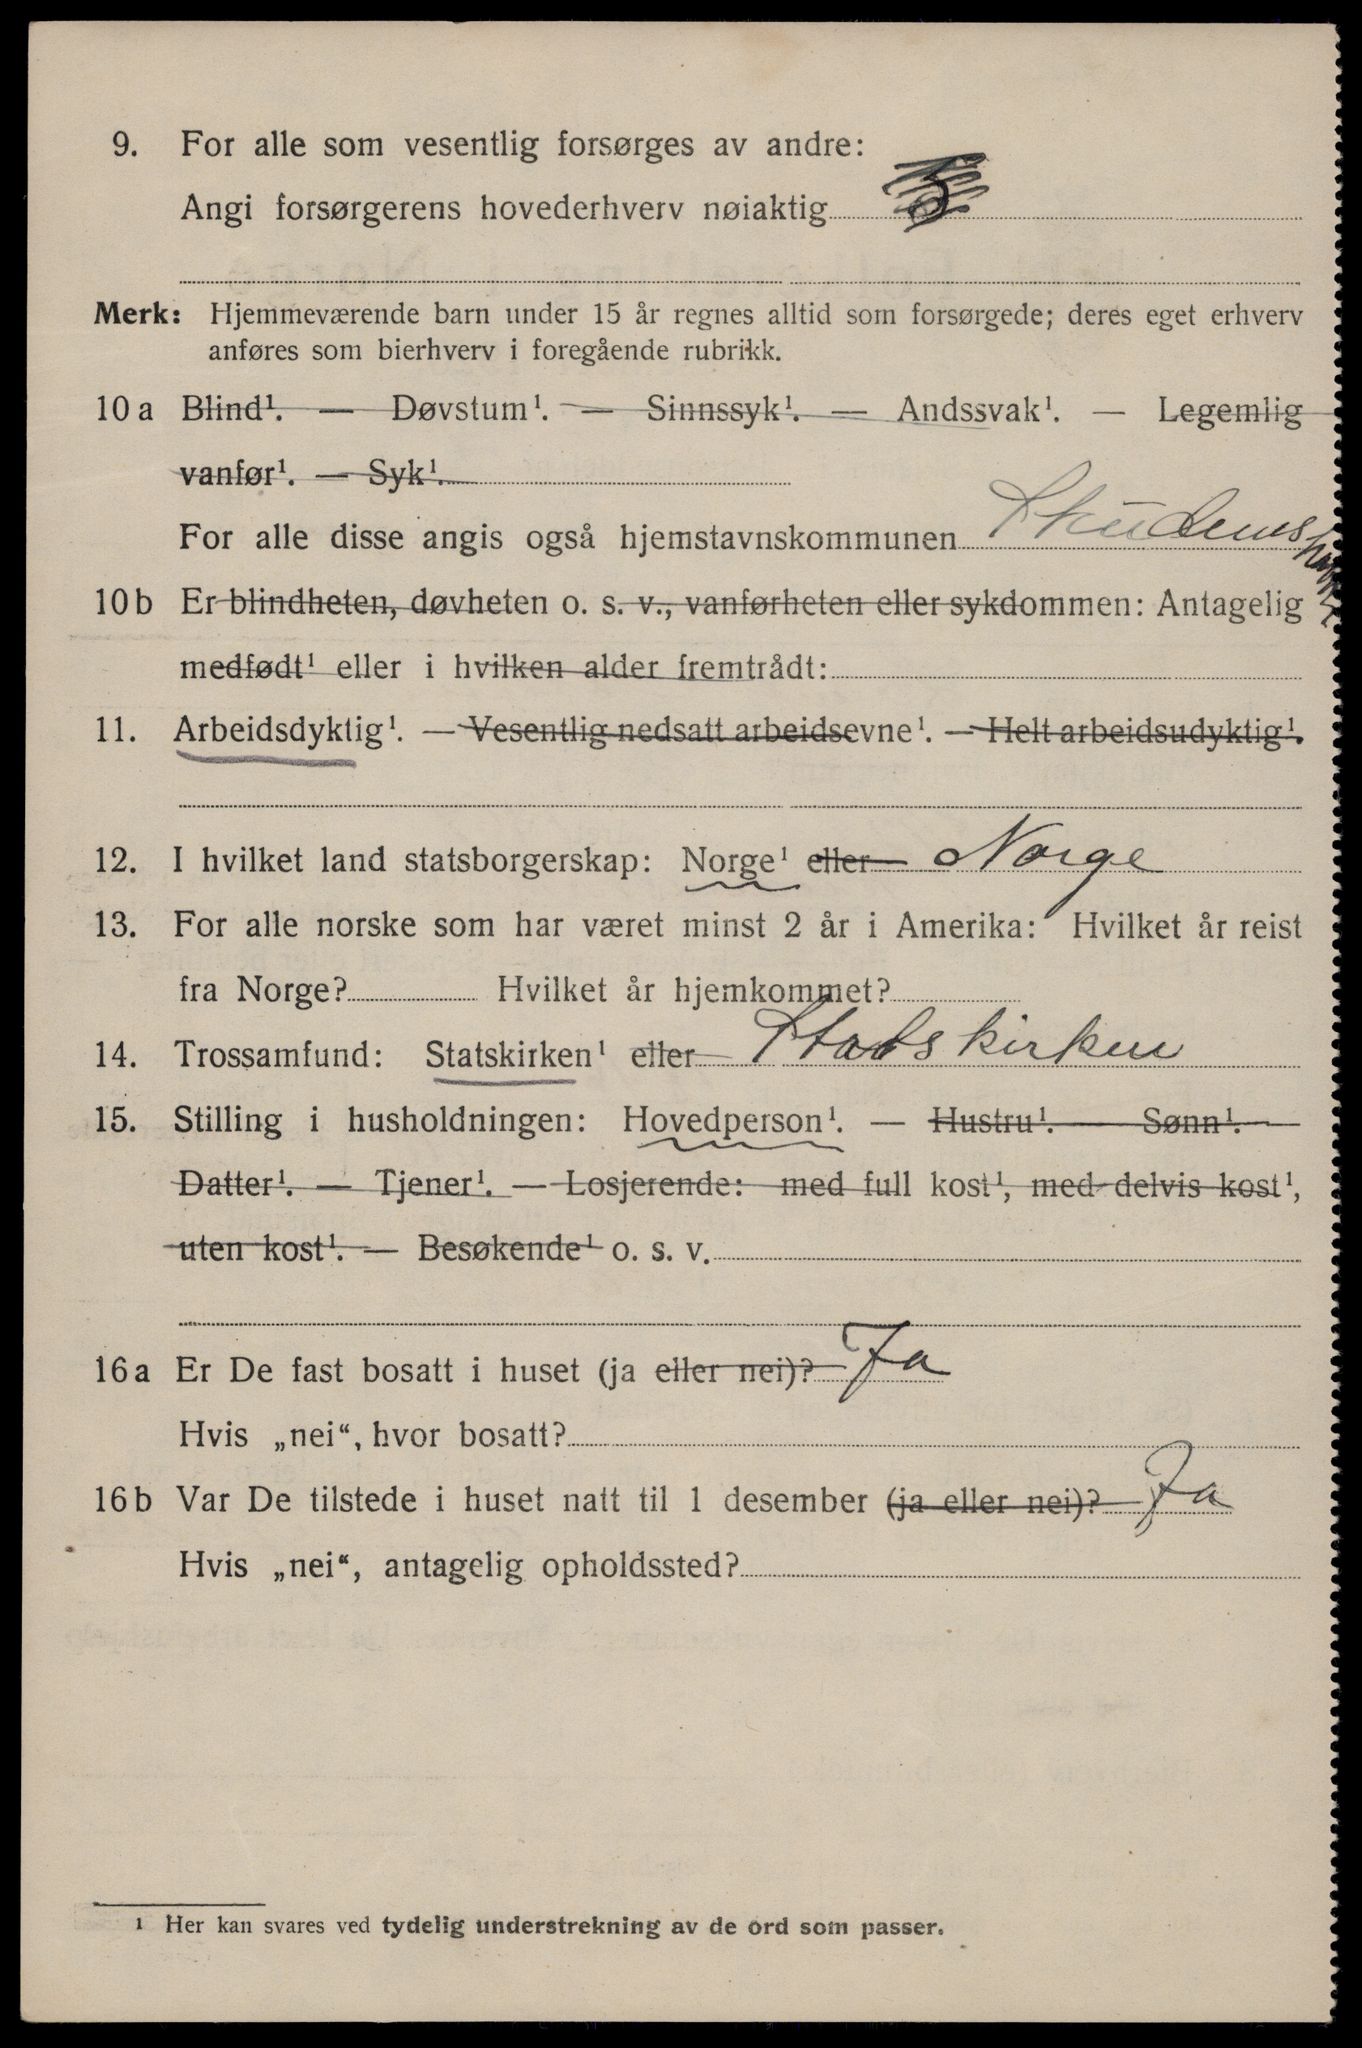 9. For alle som vesentlig forsørges av andre:
Angi forsørgerens hovederhverv nøiaktig
Merk: Hjemmeværende barn under 15 år regnes alltid som forsørgede; deres eget erhverv
anføres som bierhverv i foregående rubrikk.
10 a Blind¹. — Døvstum¹. — Sinnssyk¹. — Andssvak¹. — Legemlig
vanfør¹. — Syk¹.
For alle disse angis også hjemstavnskommunen Skudenes
10 b Er blindheten, døvheten o. s. v., vanførheten eller sykdommen: Antagelig
medfødt¹ eller i hvilken alder fremtrådt:
11. Arbeidsdyktig¹. — Vesentlig nedsatt arbeidsevne¹. — Helt arbeidsudyktig¹.
12. I hvilket land statsborgerskap: Norge¹ eller Norge
13. For alle norske som har været minst 2 år i Amerika: Hvilket år reist
fra Norge? Hvilket år hjemkommet?
14. Trossamfund: Statskirken¹ eller Statskirken
15. Stilling i husholdningen: Hovedperson¹. — Hustru¹. — Sønn¹. —
Datter¹. — Tjener¹. — Losjerende: med full kost¹, med delvis kost¹,
uten kost¹. — Besøkende¹ o. s. v.
16 a Er De fast bosatt i huset (ja eller nei)? Ja
Hvis „nei“, hvor bosatt?
16 b Var De tilstede i huset natt til 1 desember (ja eller nei)? Ja
Hvis „nei“, antagelig opholdssted?
¹ Her kan svares ved tydelig understrekning av de ord som passer.